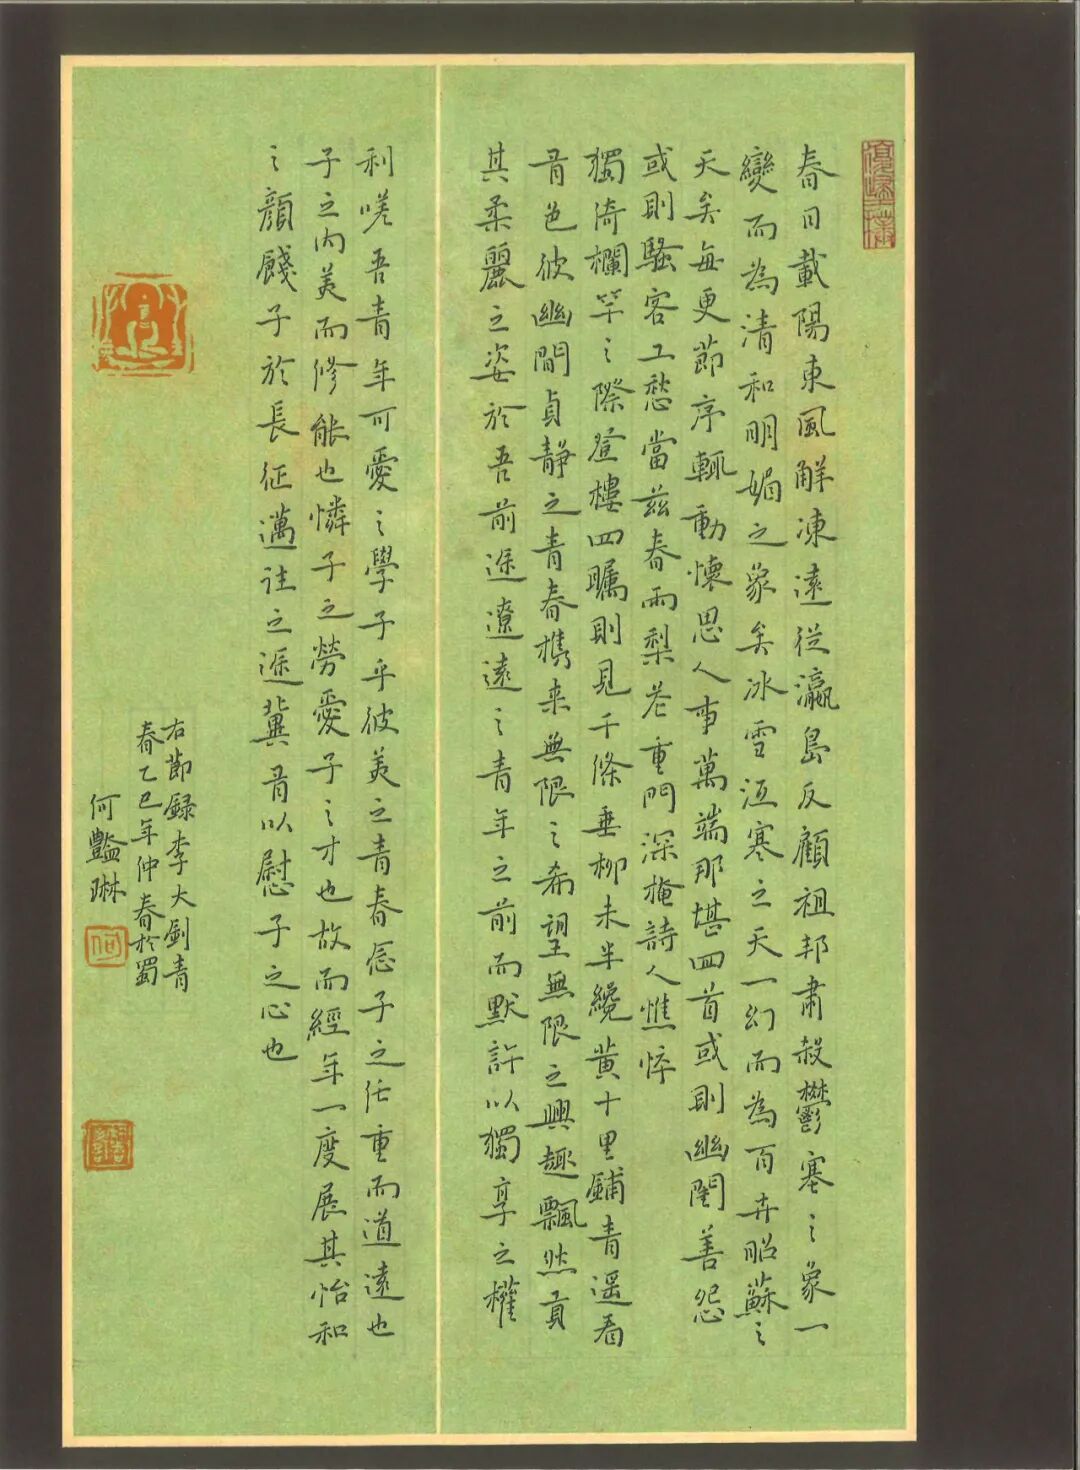 春日載陽東風解凍遠從瀛島反顧祖邦肅殺鬱塞之象一
變而為清和明媚之象矣冰雪沍寒之天一幻而為百卉昭蘇之
天矣每更節序輒動懷思人事萬端那堪回首或則幽閨善怨
或則騷客工愁當茲春雨梨花重門深掩詩人憔悴
獨倚欄竿之際登樓四矚則見千條垂柳未半纔黃十里鋪青遥看
有色彼幽間貞靜之青春攜来無限之希望無限之興趣飄然貢
其柔麗之姿於吾前途遼遠之青年之前而默許以獨享之權
利嗟吾青年可愛之學子乎彼美之青春念子之任重而道遠也
子之内美而修能也憐子之勞愛子之才也故而經年一度展其怡和
之顏餞子於長征邁往之途冀有以慰子之心也
右節録李大釗青
春乙巳年仲春於蜀
何豔琳
何